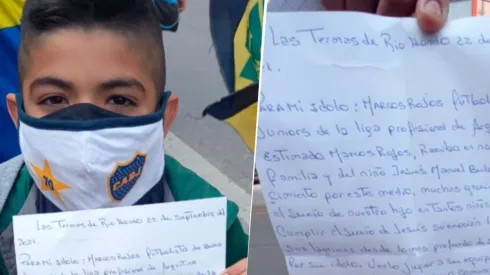 CABJ
Las Termas de Rio Hondo 22 de septiembre del
PARA mi idolo: MARCOS ROJOS futbolista de Boca
la liga profesional de Argentina
Las Termas de Rio Hondo 22 de
PARA mi idolo: MARCOS ROJOS futbol
Juniors de la liga profesional de Arg
Estimado Marcos Rojos, Reciba
familia y del niño Jesus Manuel
cimiento por este medio, muchas graci
el sueño de nuestro hijo en tantos niños
Cumplir el sueño de Jesus su emoción
sus lagrimas desde lo mas profundo de
Por su idolo. Verlo jugar a ese equip